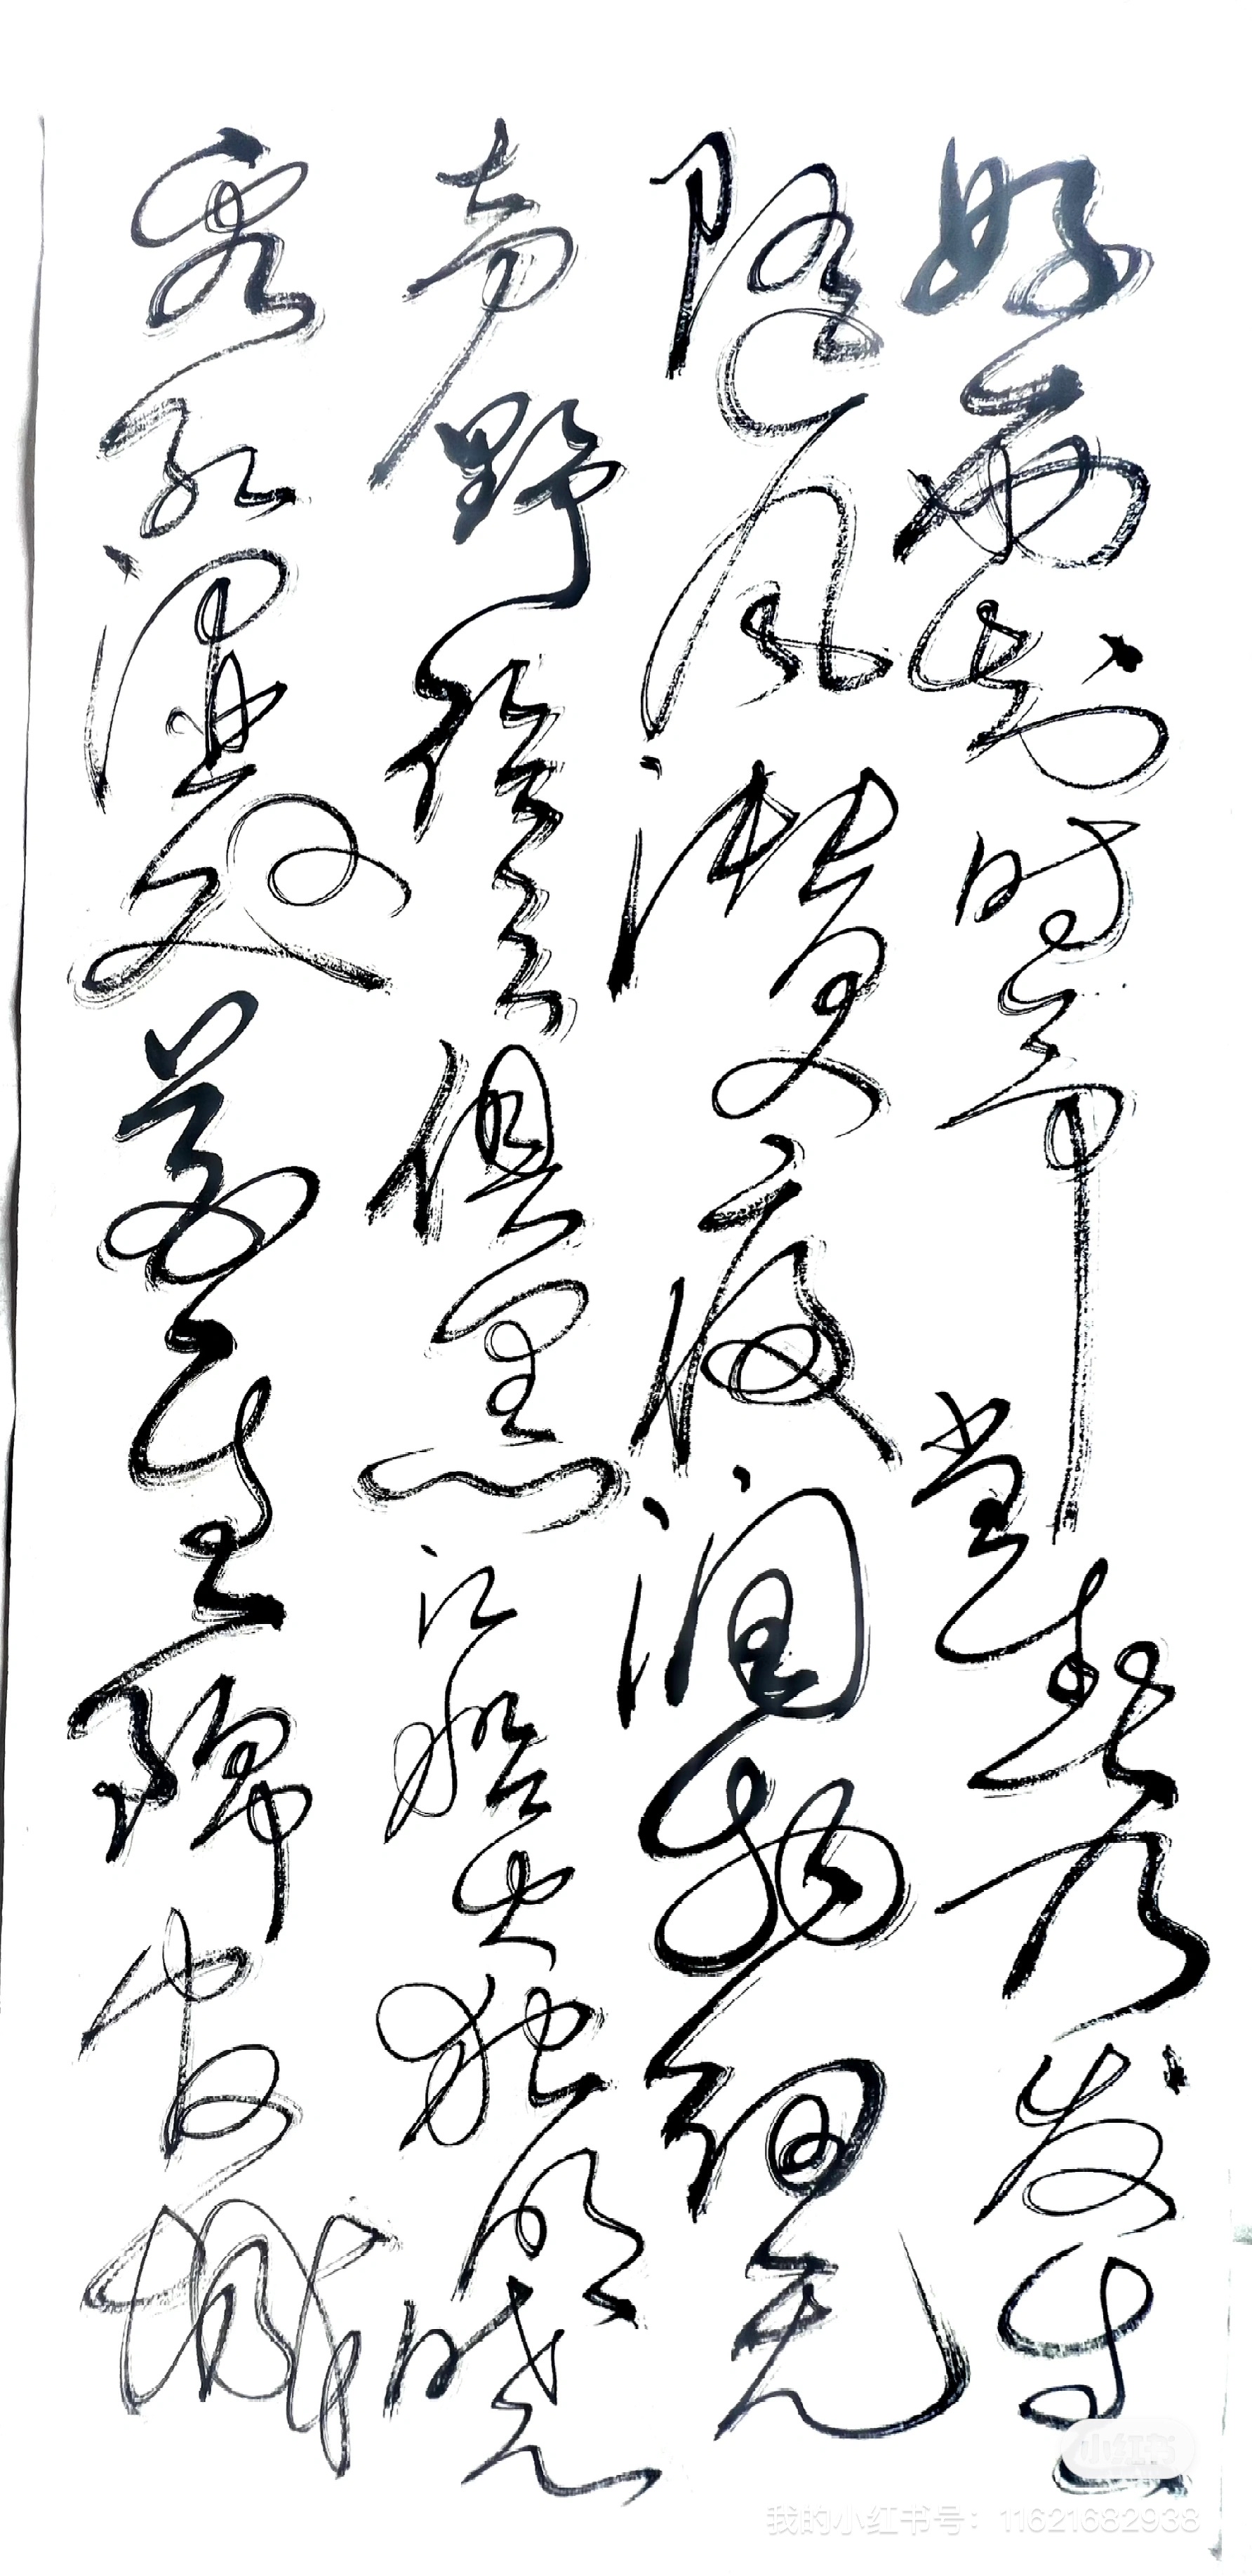 好雨知时节当春乃发生
随风潜入夜润物细无
声野径云俱黑江船火独明晓
看红湿处花重锦官城
小红书
我的小红书号：11621682938